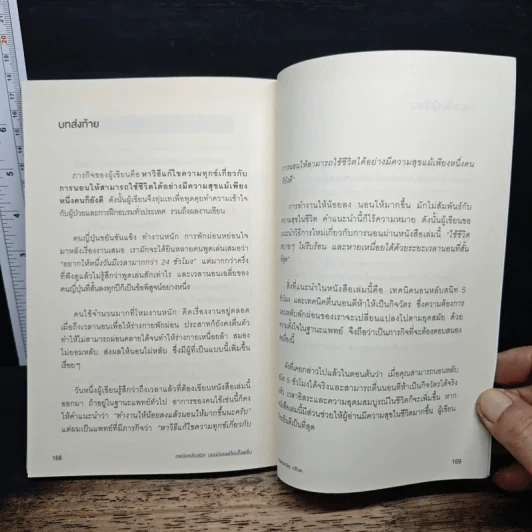 บทส่งท้าย
ภารกิจของผู้เขียนคือ หาวิธีแก้ไขความทุกข์เกี่ยวกับ
การนอนให้สามารถใช้ชีวิตได้อย่างมีความสุขแม้เพียง
หนึ่งคนก็ยังดี ดังนั้นผู้เขียนจึงทุ่มเทเพื่อพูดคุยทำความเข้าใจ
กับผู้ป่วยและการฝึกอบรมทั่วประเทศ รวมถึงผลงานเขียน
คนญี่ปุ่นขยันขันแข็ง ทำงานหนัก การพักผ่อนหย่อนใจ
มาหลังเรื่องงานเสมอ เรามักจะได้ยินหลายคนพูดเล่นเสมอว่า
"อยากให้หนึ่งวันมีเวลามากกว่า 24 ชั่วโมง" แต่มากกว่าครึ่ง
ที่ฟังดูแล้วไม่รู้สึกว่าพูดเล่นสักเท่าไร และเวลานอนเฉลี่ยของ
คนญี่ปุ่นที่สั้นลงทุกปีก็เป็นข้อพิสูจน์อย่างหนึ่ง
คนไข้จำนวนมากที่โหมงานหนัก คิดเรื่องงานอยู่ตลอด
เมื่อถึงเวลานอนเพื่อให้ร่างกายพักผ่อน ประสาทก็ยังคงตื่นตัว
ทำให้ไม่สามารถผ่อนคลายได้จนทำให้ร่างกายเหนื่อยล้า สมอง
ไม่ยอมหลับ ส่งผลให้นอนไม่หลับ ซึ่งมีผู้ที่เป็นแบบนี้เพิ่มขึ้น
เรื่อยๆ
วันหนึ่งผู้เขียนรู้สึกว่าถึงเวลาแล้วที่ต้องเขียนหนังสือเล่มนี้
ออกมา ถ้าอยู่ในฐานะแพทย์ทั่วไป อาการของคนไข้เช่นนี้ก็คง
ให้คำแนะนำว่า "ทำงานให้น้อยลงแล้วนอนให้มากขึ้นนะครับ"
แต่ผมเป็นแพทย์ที่มีภารกิจว่า "หาวิธีแก้ไขความทุกข์เกี่ยวกับ
168
การนอนให้สามารถใช้ชีวิตได้อย่างมีความสุขแม้เพียงหนึ่งคน
ก็ยังดี"
การทำงานให้น้อยลง นอนให้มากขึ้น มักไม่สัมพันธ์กับ
ความสุขในชีวิต คำแนะนำนี้ก็ไร้ความหมาย ดังนั้นผู้เขียนขอ
แนะนำวิธีการใหม่เกี่ยวกับการนอนผ่านหนังสือเล่มนี้ "ชีวิต
ไม่รีบร้อน และหายเหนื่อยได้ด้วยระยะเวลานอนที่สั้น
สิ่งที่แนะนำในหนังสือเล่มนี้คือ เทคนิคนอนหลับสนิท 5
ชั่วโมง และเทคนิคตื่นนอนดีทำให้เป็นกิจวัตร ซึ่งความต้องการ
นอนหลับพักผ่อนของเราจะเปลี่ยนแปลงไปตามยุคสมัย ด้วย
ความตั้งใจในฐานะแพทย์ จึงถือว่าเป็นภารกิจที่จะต้องตอบสนอง
ดังที่เคยกล่าวไปแล้วในตอนต้นว่า เมื่อคุณสามารถนอนหลับ
สนิท 5 ชั่วโมงได้จริงและสามารถตื่นนอนดีทำเป็นกิจวัตรได้จริง
แล้ว เวลาอิสระและความอุดมสมบูรณ์ในชีวิตก็จะเพิ่มขึ้น หาก
หนังสือเล่มนี้มีส่วนช่วยให้ผู้อ่านมีความสุขในชีวิตมากขึ้น ผู้เขียน
ยินดีเป็นที่สุด
169